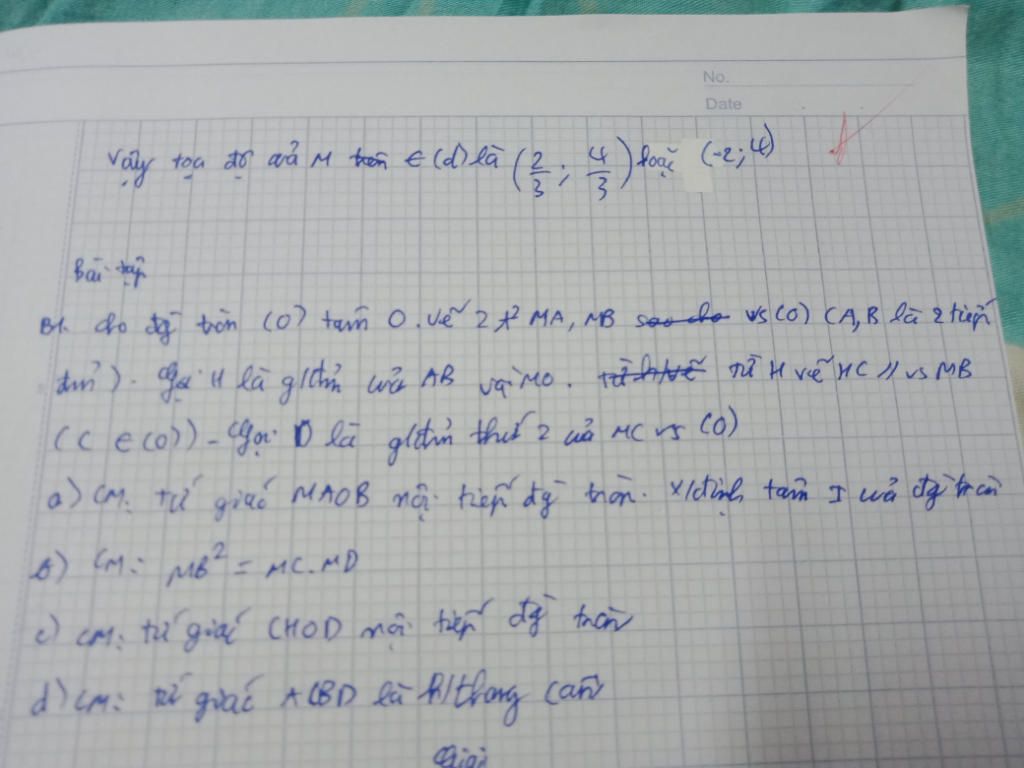 No.
Date
Vậy tọa độ của M trên ∈ (d) là (2/3; 4/3) hoặc (-2; 4)
Bài tập
B1. Cho đg tròn (O) tâm O. Vẽ 2 t² MA, MB sao cho vs (O) (A, B là 2 tiếp
đm). Gọi H là g/điểm của AB và MO. Từ H vẽ HC // vs MB
(C ∈ (O)) - Gọi D là g/điểm thứ 2 của MC vs (O)
a) CM: tứ giác MAOB nội tiếp đg tròn. X/định tâm I của đg tròn
b) CM: MB² = MC.MD
c) CM: tứ giác CHOD nội tiếp đg tròn
d) CM: tứ giác ACBD là h/thang cân
Giải